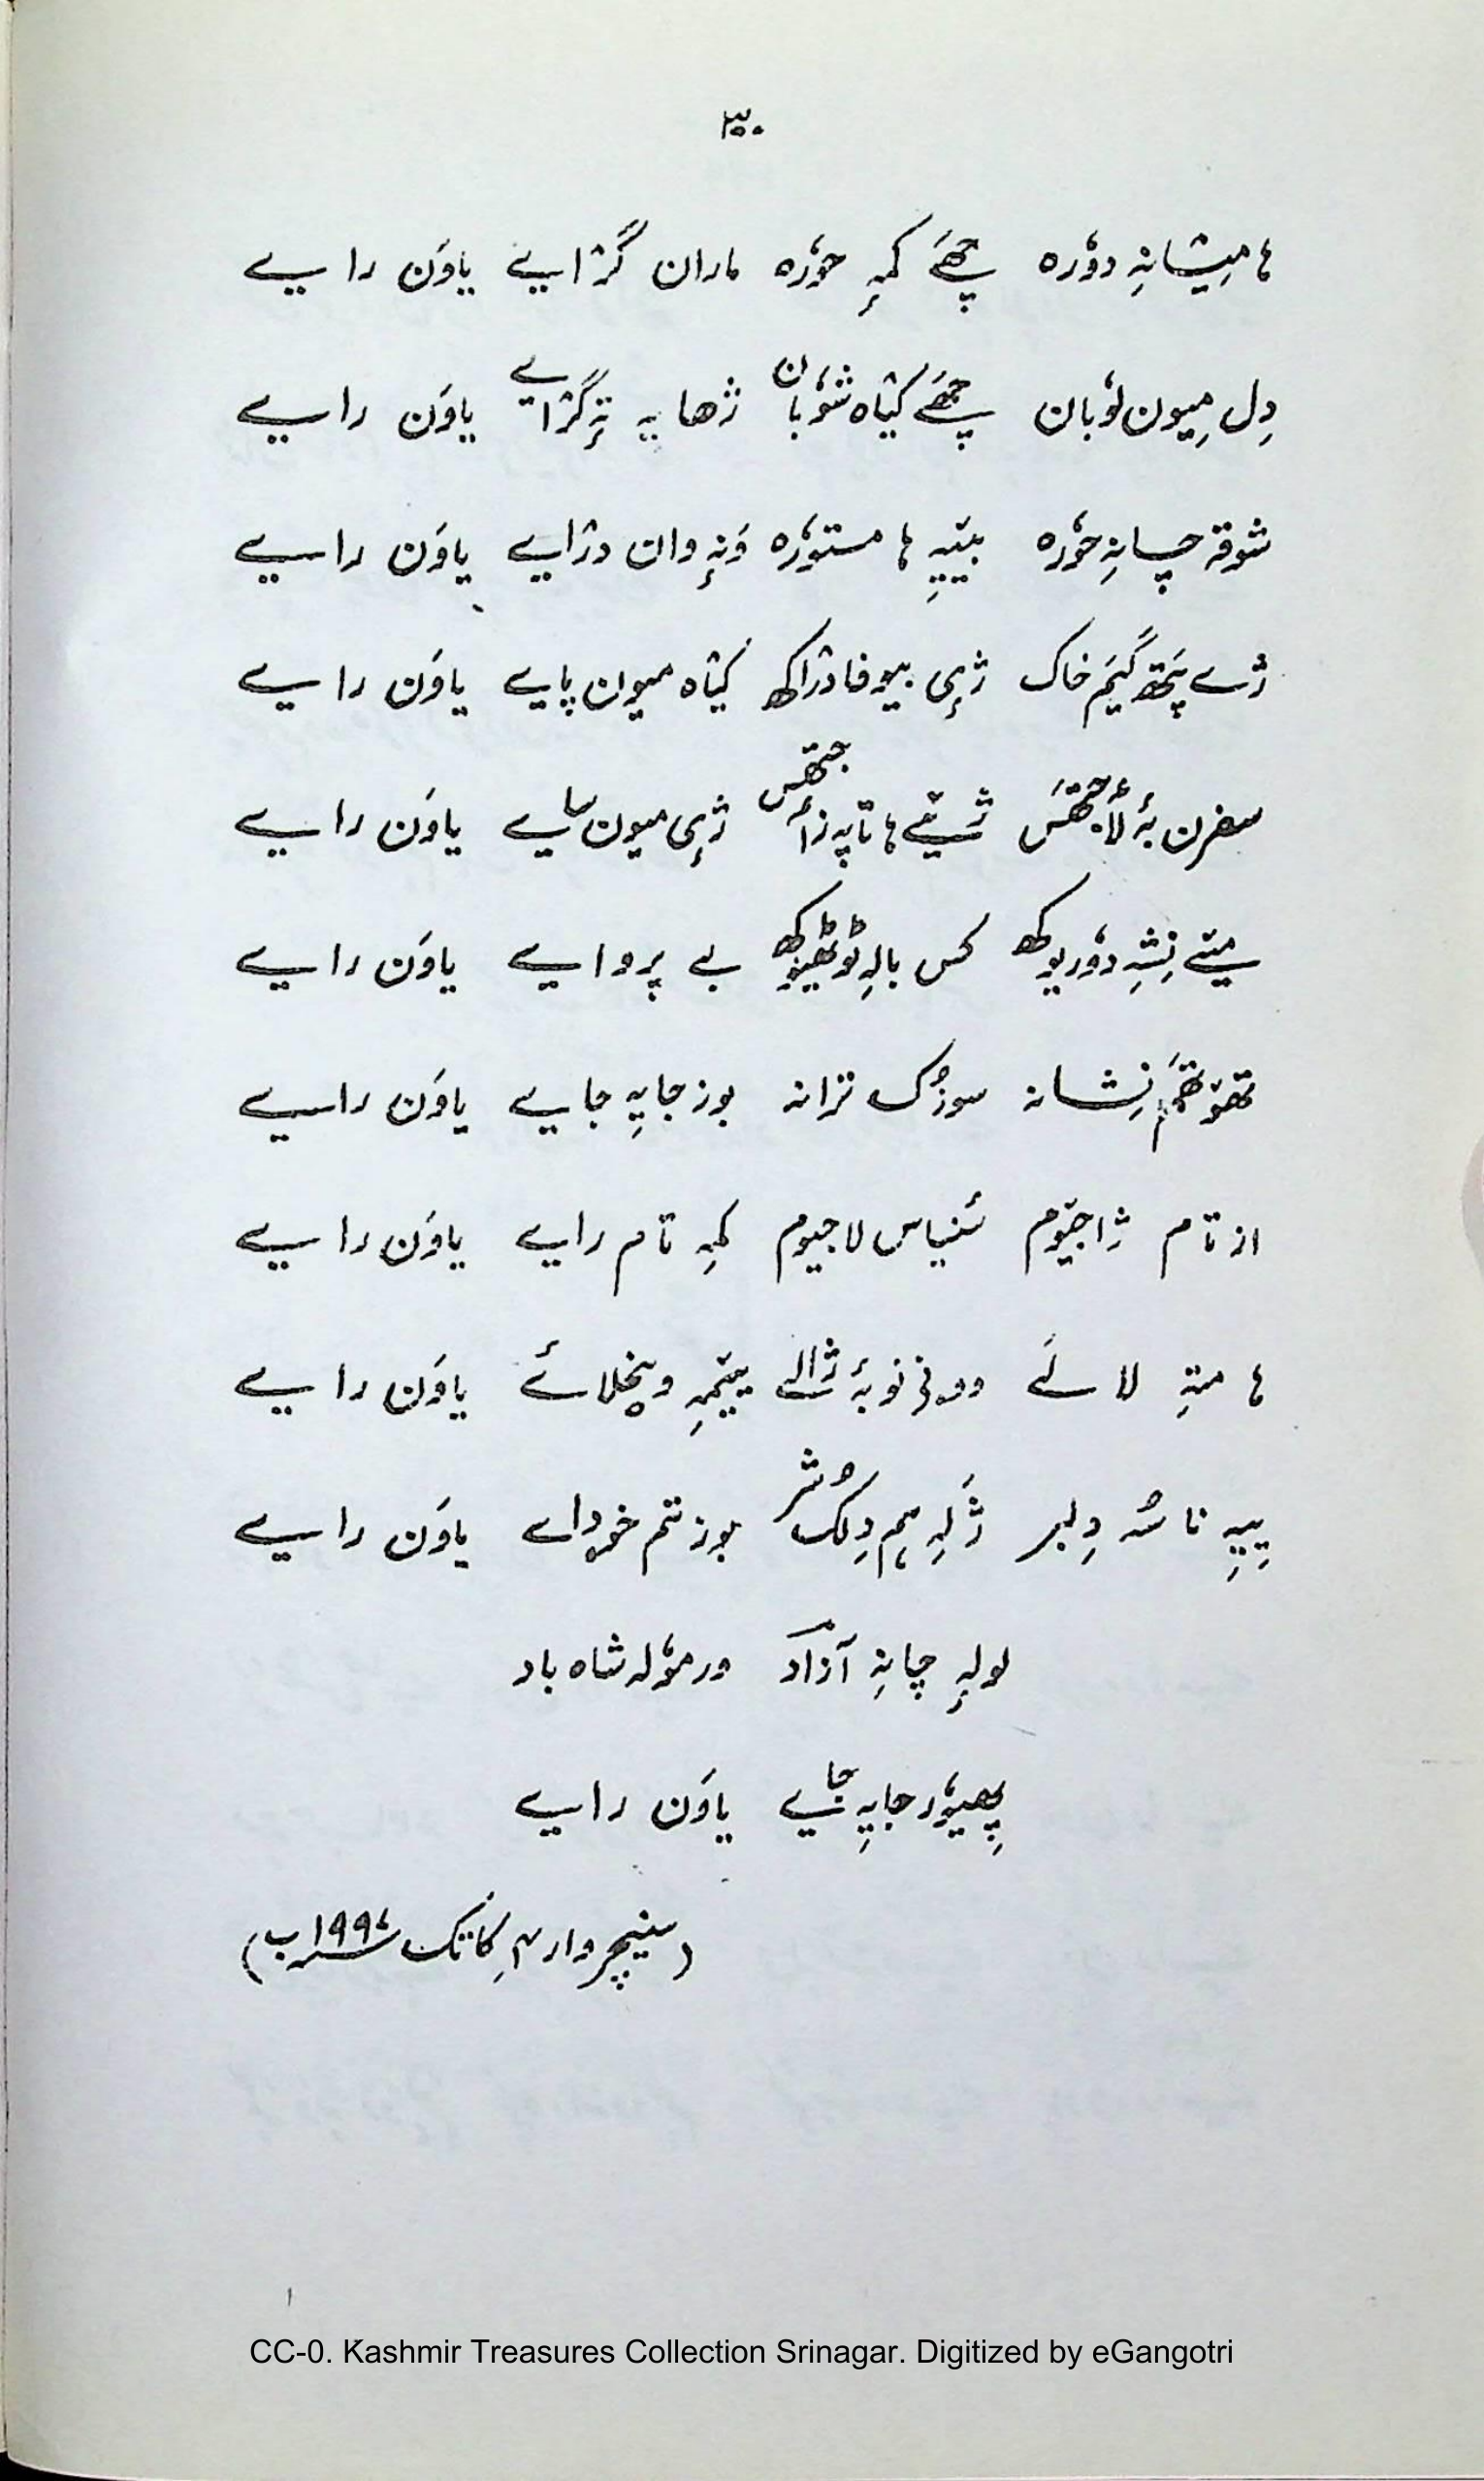 ۳۰
ہا میشانہِ دوٗرہ چھَے کمہِ حوٗرہ ماران گرٛایے یاوَن رایے
دِل میون لوٗبان چھَے کیٛاہ شوٗبان ژھایہ تہٕ گرٛایے یاوَن رایے
شوقہ چانہِ حوٗرہ بییہِ ہا مستوٗرہ وَنہٕ وان درٛایے یاوَن رایے
ژے پَتھ گیَم خاک ژٕی بیوفا درٛاکھ کیٛاہ میون پایے یاوَن رایے
سفرن بہٕ لأجتھَس ژے ہا تاپہ زأجتھس ژٕی میون سایے یاوَن رایے
میے نِشہِ دوٗریوکھ کس بالہِ ٹوٹھیوکھ بے پروایے یاوَن رایے
تھوتھَم نِشانہ سوزُک ترانہ بوز جایہِ جایے یاوَن رایے
از تام ژاجیوم سَنیاس لاجیوم کمہِ تام رایے یاوَن رایے
ہا متہِ لالَے وونی نو بہٕ ژالے ییمہِ ویٖخلائے یاوَن رایے
ییہِ نا سُہ دِلبر ژَلہِ ہم دِلُک شر بوزتم خودایے یاوَن رایے
لولہٕ چانہِ آزاد ورموٗلہ شاہ باد
پھیوٗر جایہِ جایے یاوَن رایے
(سنیچروار ۴ کاتک ۱۹۹۷ب)
CC-0. Kashmir Treasures Collection Srinagar. Digitized by eGangotri